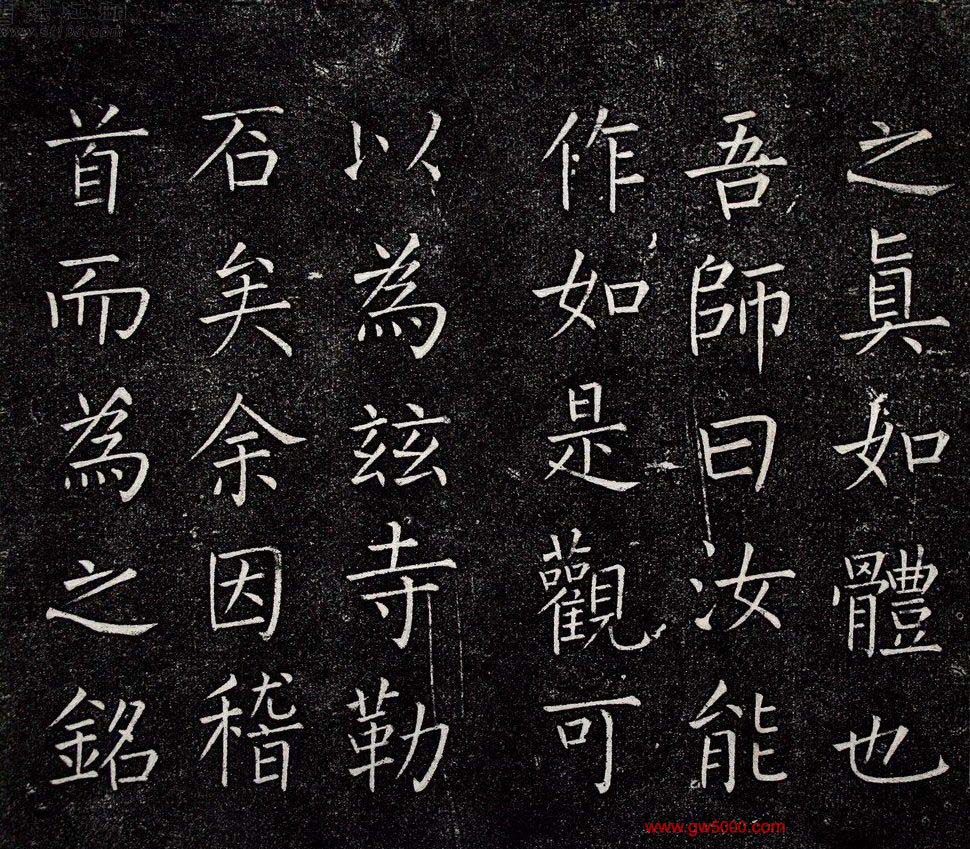 之真如體也
吾師曰汝能
作如是觀可
以為茲寺勒
石矣余因稽
首而為之銘
www.gw5000.com